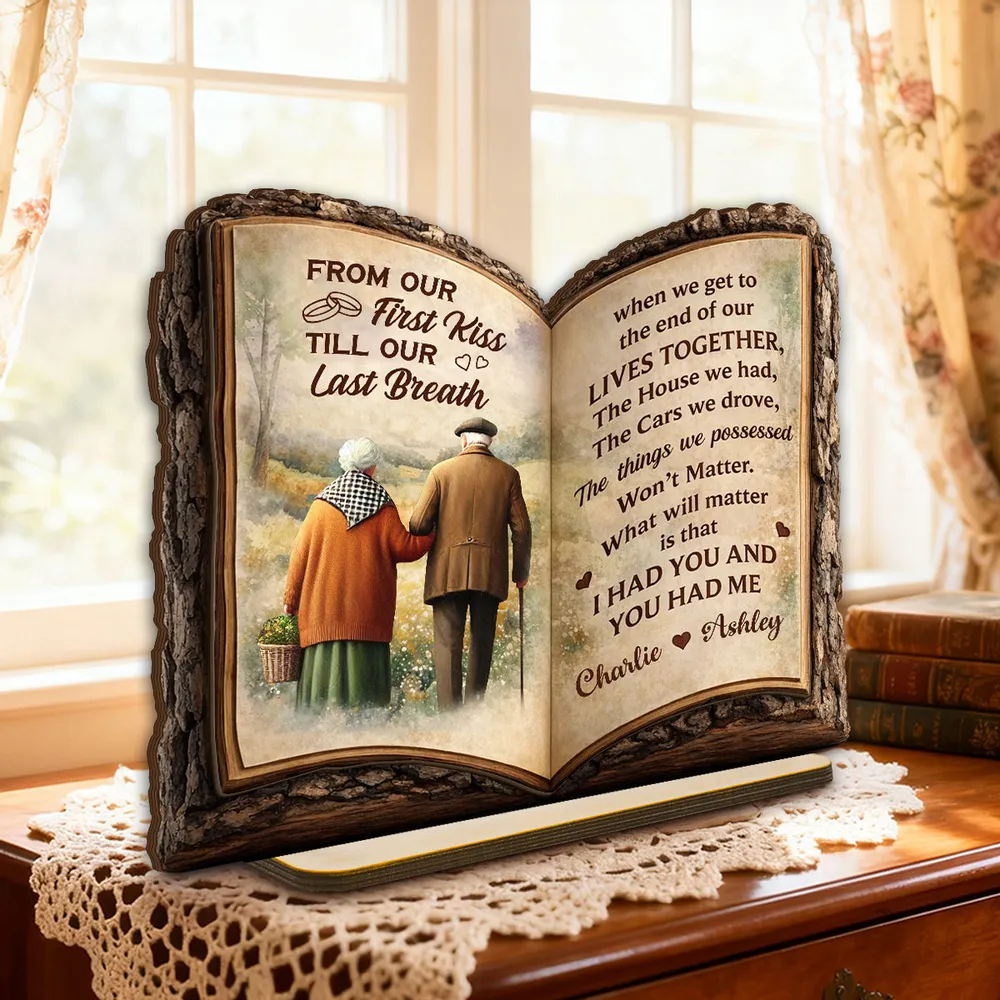 FROM OUR
First Kiss
TILL OUR
Last Breath
when we get to
the end of our
LIVES TOGETHER,
The House we had,
The Cars we drove,
The things we possessed
Won't Matter.
What will matter
is that
I HAD YOU AND
YOU HAD ME
Charlie Ashley